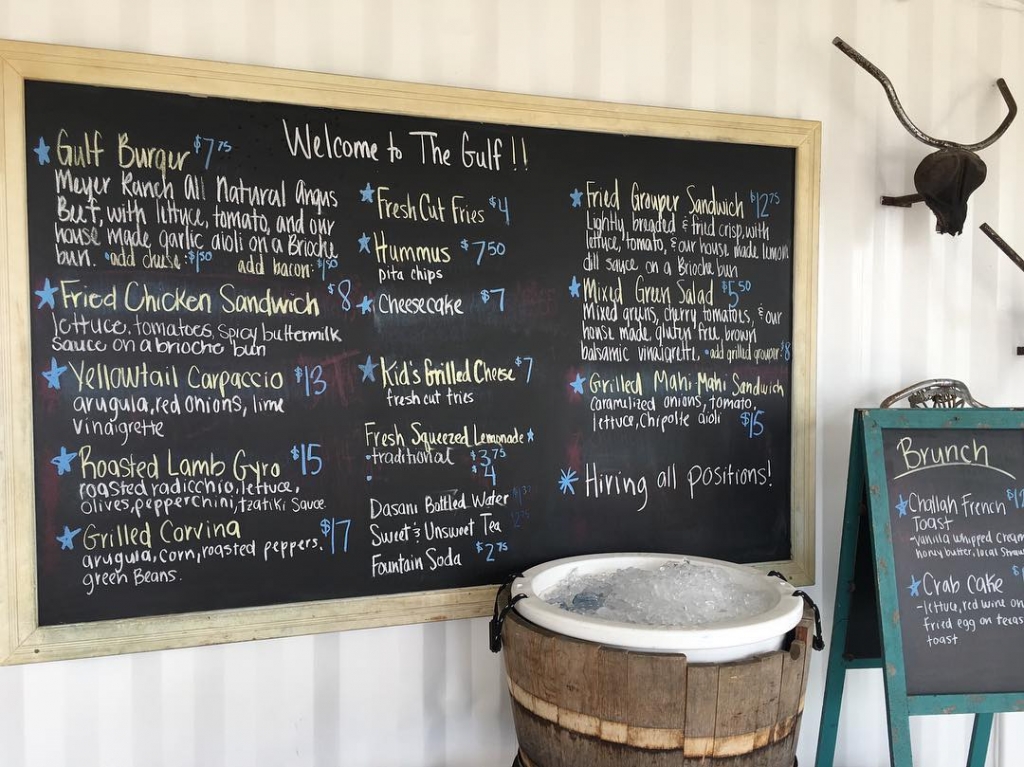 Welcome to The Gulf!!
Gulf Burger $7.75
Meyer Ranch All Natural Angus
Beef, with lettuce, tomato, and our
house made garlic aioli on a Brioche
bun. *add cheese $1.50 add bacon $1.50
Fried Chicken Sandwich $8
lettuce, tomatoes, spicy buttermilk
sauce on a brioche bun
Yellowtail Carpaccio $13
arugula, red onions, lime
vinaigrette
Roasted Lamb Gyro $15
roasted radicchio, lettuce,
olives, pepperchini, tzatiki sauce
Grilled Corvina $17
arugula, corn, roasted peppers,
green Beans.
Fresh Cut Fries $4
Hummus $7.50
pita chips
Cheesecake $7
Kid's Grilled Cheese $7
fresh cut fries
Fresh Squeezed Lemonade
traditional $3.75
$4
Dasani Bottled Water
Sweet & Unsweet Tea
Fountain Soda $2.75
Fried Grouper Sandwich $12.75
Lightly breaded & fried crisp, with
lettuce, tomato, & our house made lemon
dill sauce on a Brioche bun
Mixed Green Salad $5.50
Mixed greens, cherry tomatoes, & our
house made gluten free brown
balsamic vinaigrette. *add grilled grouper $8
Grilled Mahi-Mahi Sandwich
caramelized onions, tomato,
lettuce, chipolte aioli $15
Hiring all positions!
Brunch
Challah French
Toast
-vanilla whipped cream
honey butter, local
Crab Cake
-lettuce, red wine
fried egg on texas
toast